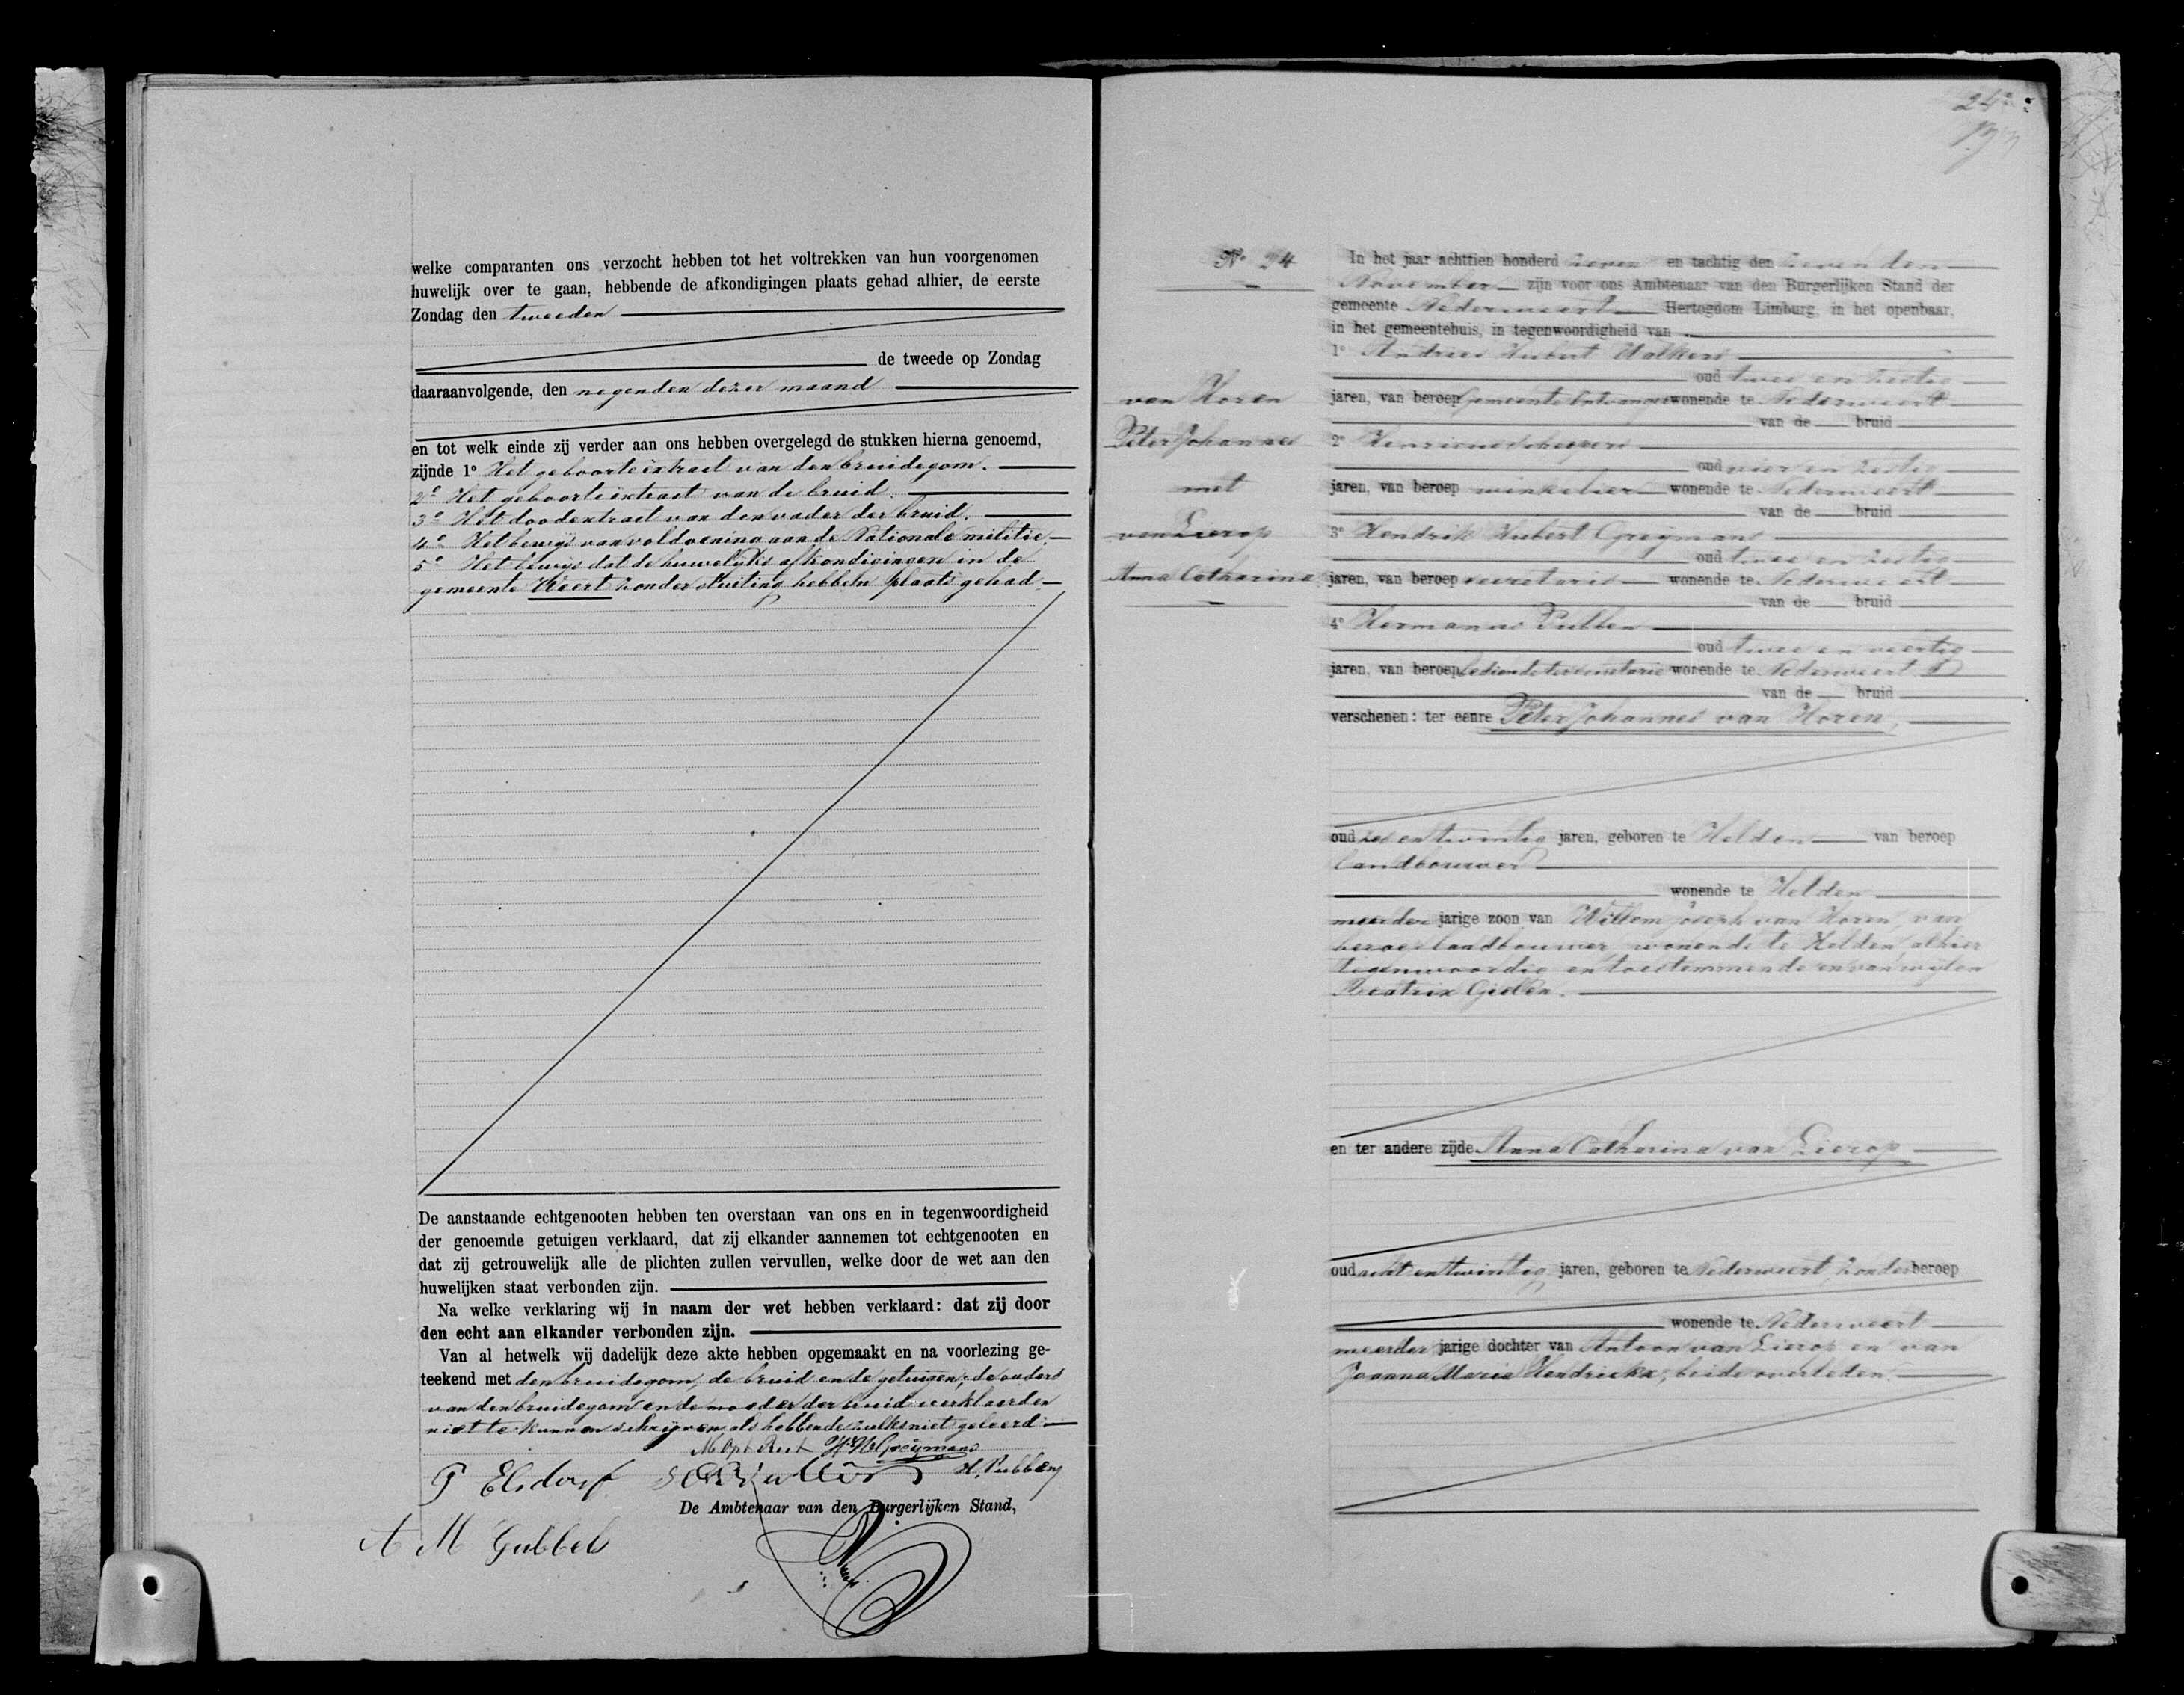 welke comparanten ons verzocht hebben tot het voltrekken van hun voorgenomen
huwelijk over te gaan, hebbende de afkondigingen plaats gehad alhier, de eerste
Zondag den tweeden
de tweede op Zondag
daaraanvolgende, den negenden dezer maand
en tot welk einde zij verder aan ons hebben overgelegd de stukken hierna genoemd,
zijnde 1º Het geboorteëxtract van den bruidegom.
2º Het geboorteëxtract van de bruid.
3º Het doodextract van den vader der bruid.
4º Het bewijs van voldoening aan de Nationale militie.
5º Het bewijs dat de huwelijks afkondigingen in de
gemeente Weert zonder stuiting hebben plaats gehad.
De aanstaande echtgenooten hebben ten overstaan van ons en in tegenwoordigheid
der genoemde getuigen verklaard, dat zij elkander aannemen tot echtgenooten en
dat zij getrouwelijk alle de plichten zullen vervullen, welke door de wet aan den
huwelijken staat verbonden zijn.
Na welke verklaring wij in naam der wet hebben verklaard: dat zij door
den echt aan elkander verbonden zijn.
Van al hetwelk wij dadelijk deze akte hebben opgemaakt en na voorlezing ge-
teekend met den bruidegom, de bruid en de getuigen; de ouders
van den bruidegom en de moeder der bruid verklaarden
niet te kunnen schrijven als hebbende zulks niet geleerd.
H. H. Greijmans
P Elsdorf H. Pubben
De Ambtenaar van den Burgerlijken Stand,
A M Gubbels
24
Nº 24
van Horen
Peter Johannes
met
van Lierop
Anna Catharina
In het jaar achttien honderd zeven en tachtig den zevenden
November zijn voor ons Ambtenaar van den Burgerlijken Stand der
gemeente Nederweert Hertogdom Limburg, in het openbaar,
in het gemeentehuis, in tegenwoordigheid van
1º Andries Hubert Walkers
oud twee en zestig
jaren, van beroep Gemeente Ontvanger wonende te Nederweert
van de bruid
2º Henricus Scheepers
oud vier en zestig
jaren, van beroep winkelier wonende te Nederweert
van de bruid
3º Hendrik Hubert Greijmans
oud twee en zestig
jaren, van beroep secretaris wonende te Nederweert
van de bruid
4º Hermanus Pubben
oud twee en veertig
jaren, van beroep bediende ter secretarie wonende te Nederweert
van de bruid
verschenen: ter eenre Peter Johannes van Horen,
oud zes en twintig jaren, geboren te Helden van beroep
landbouwer
wonende te Helden
meerder jarige zoon van Willem Joseph van Horen, van
beroep landbouwer, wonende te Helden, alhier
tegenwoordig en toestemmende en van wijlen
Beatrix Gielen.
en ter andere zijde Anna Catharina van Lierop
oud acht en twintig jaren, geboren te Nederweert, zonder beroep
wonende te Nederweert
meerder jarige dochter van Antoon van Lierop en van
Joanna Maria Hendrickx, beide overleden.